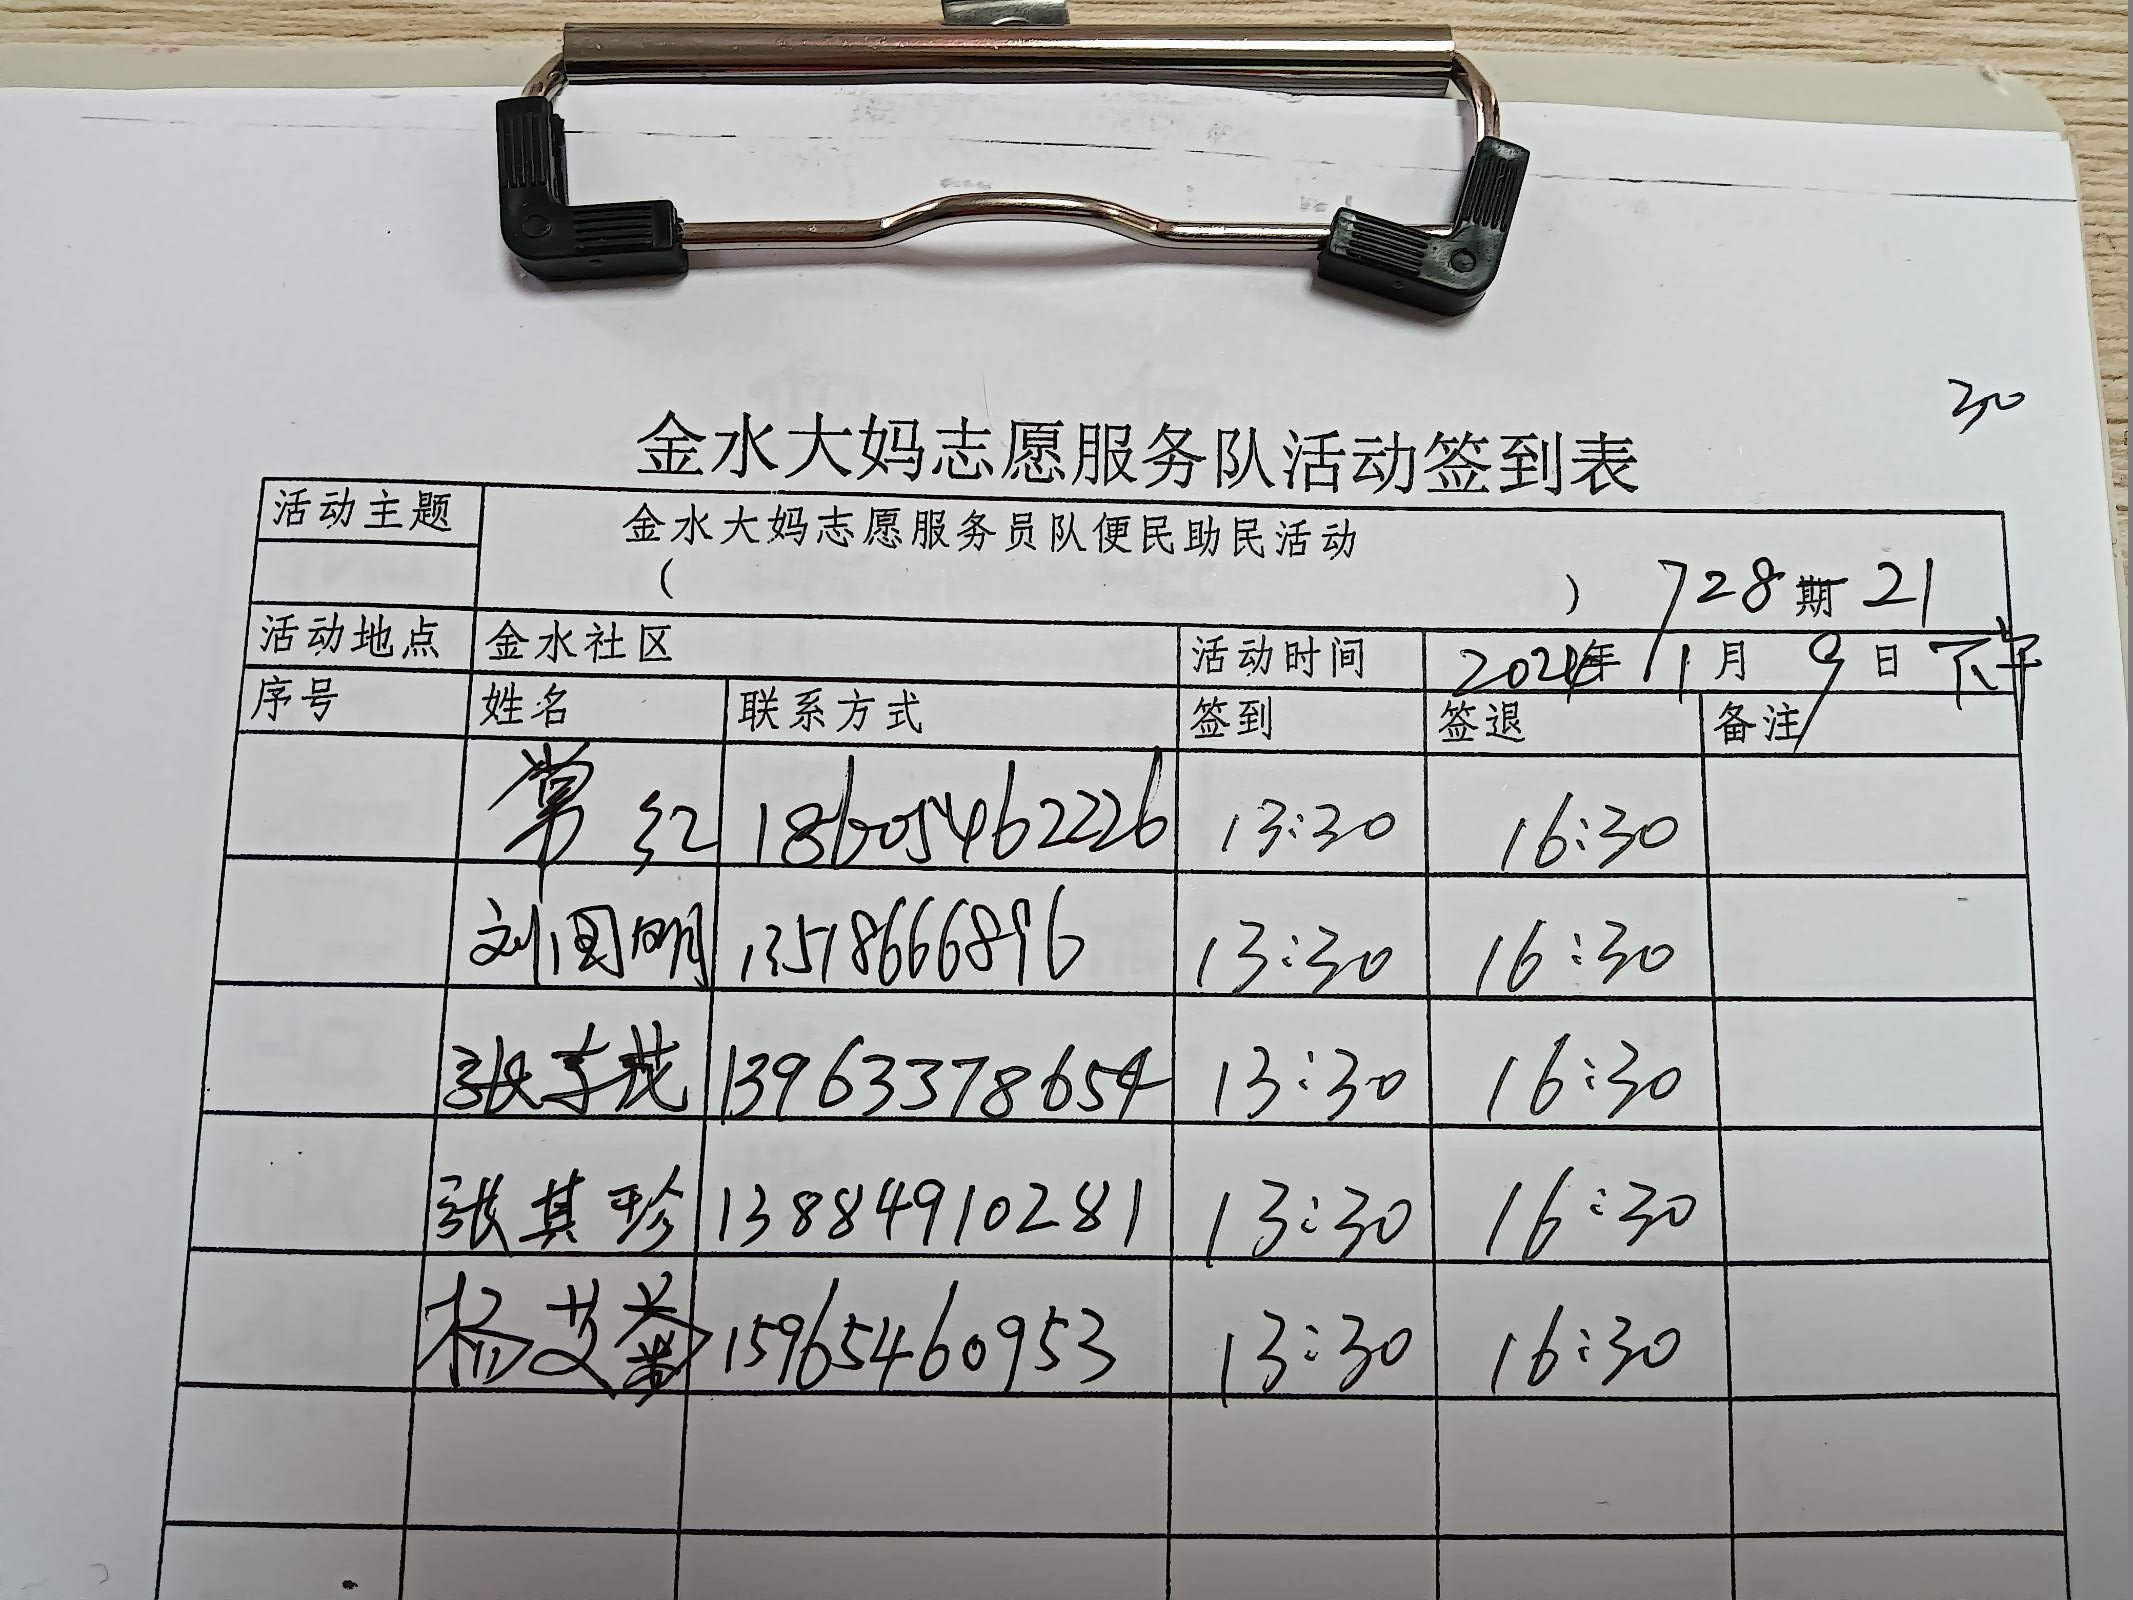 30
金水大妈志愿服务队活动签到表
活动主题 金水大妈志愿服务员队便民助民活动
( ) 728期 21
活动地点 金水社区 活动时间 2024年 1月 9日 下午
序号 姓名 联系方式 签到 签退 备注
常红 18605462226 13:30 16:30
刘国明 13518666896 13:30 16:30
张李茂 13963378654 13:30 16:30
张其珍 13884910281 13:30 16:30
杨艾 15965460953 13:30 16:30